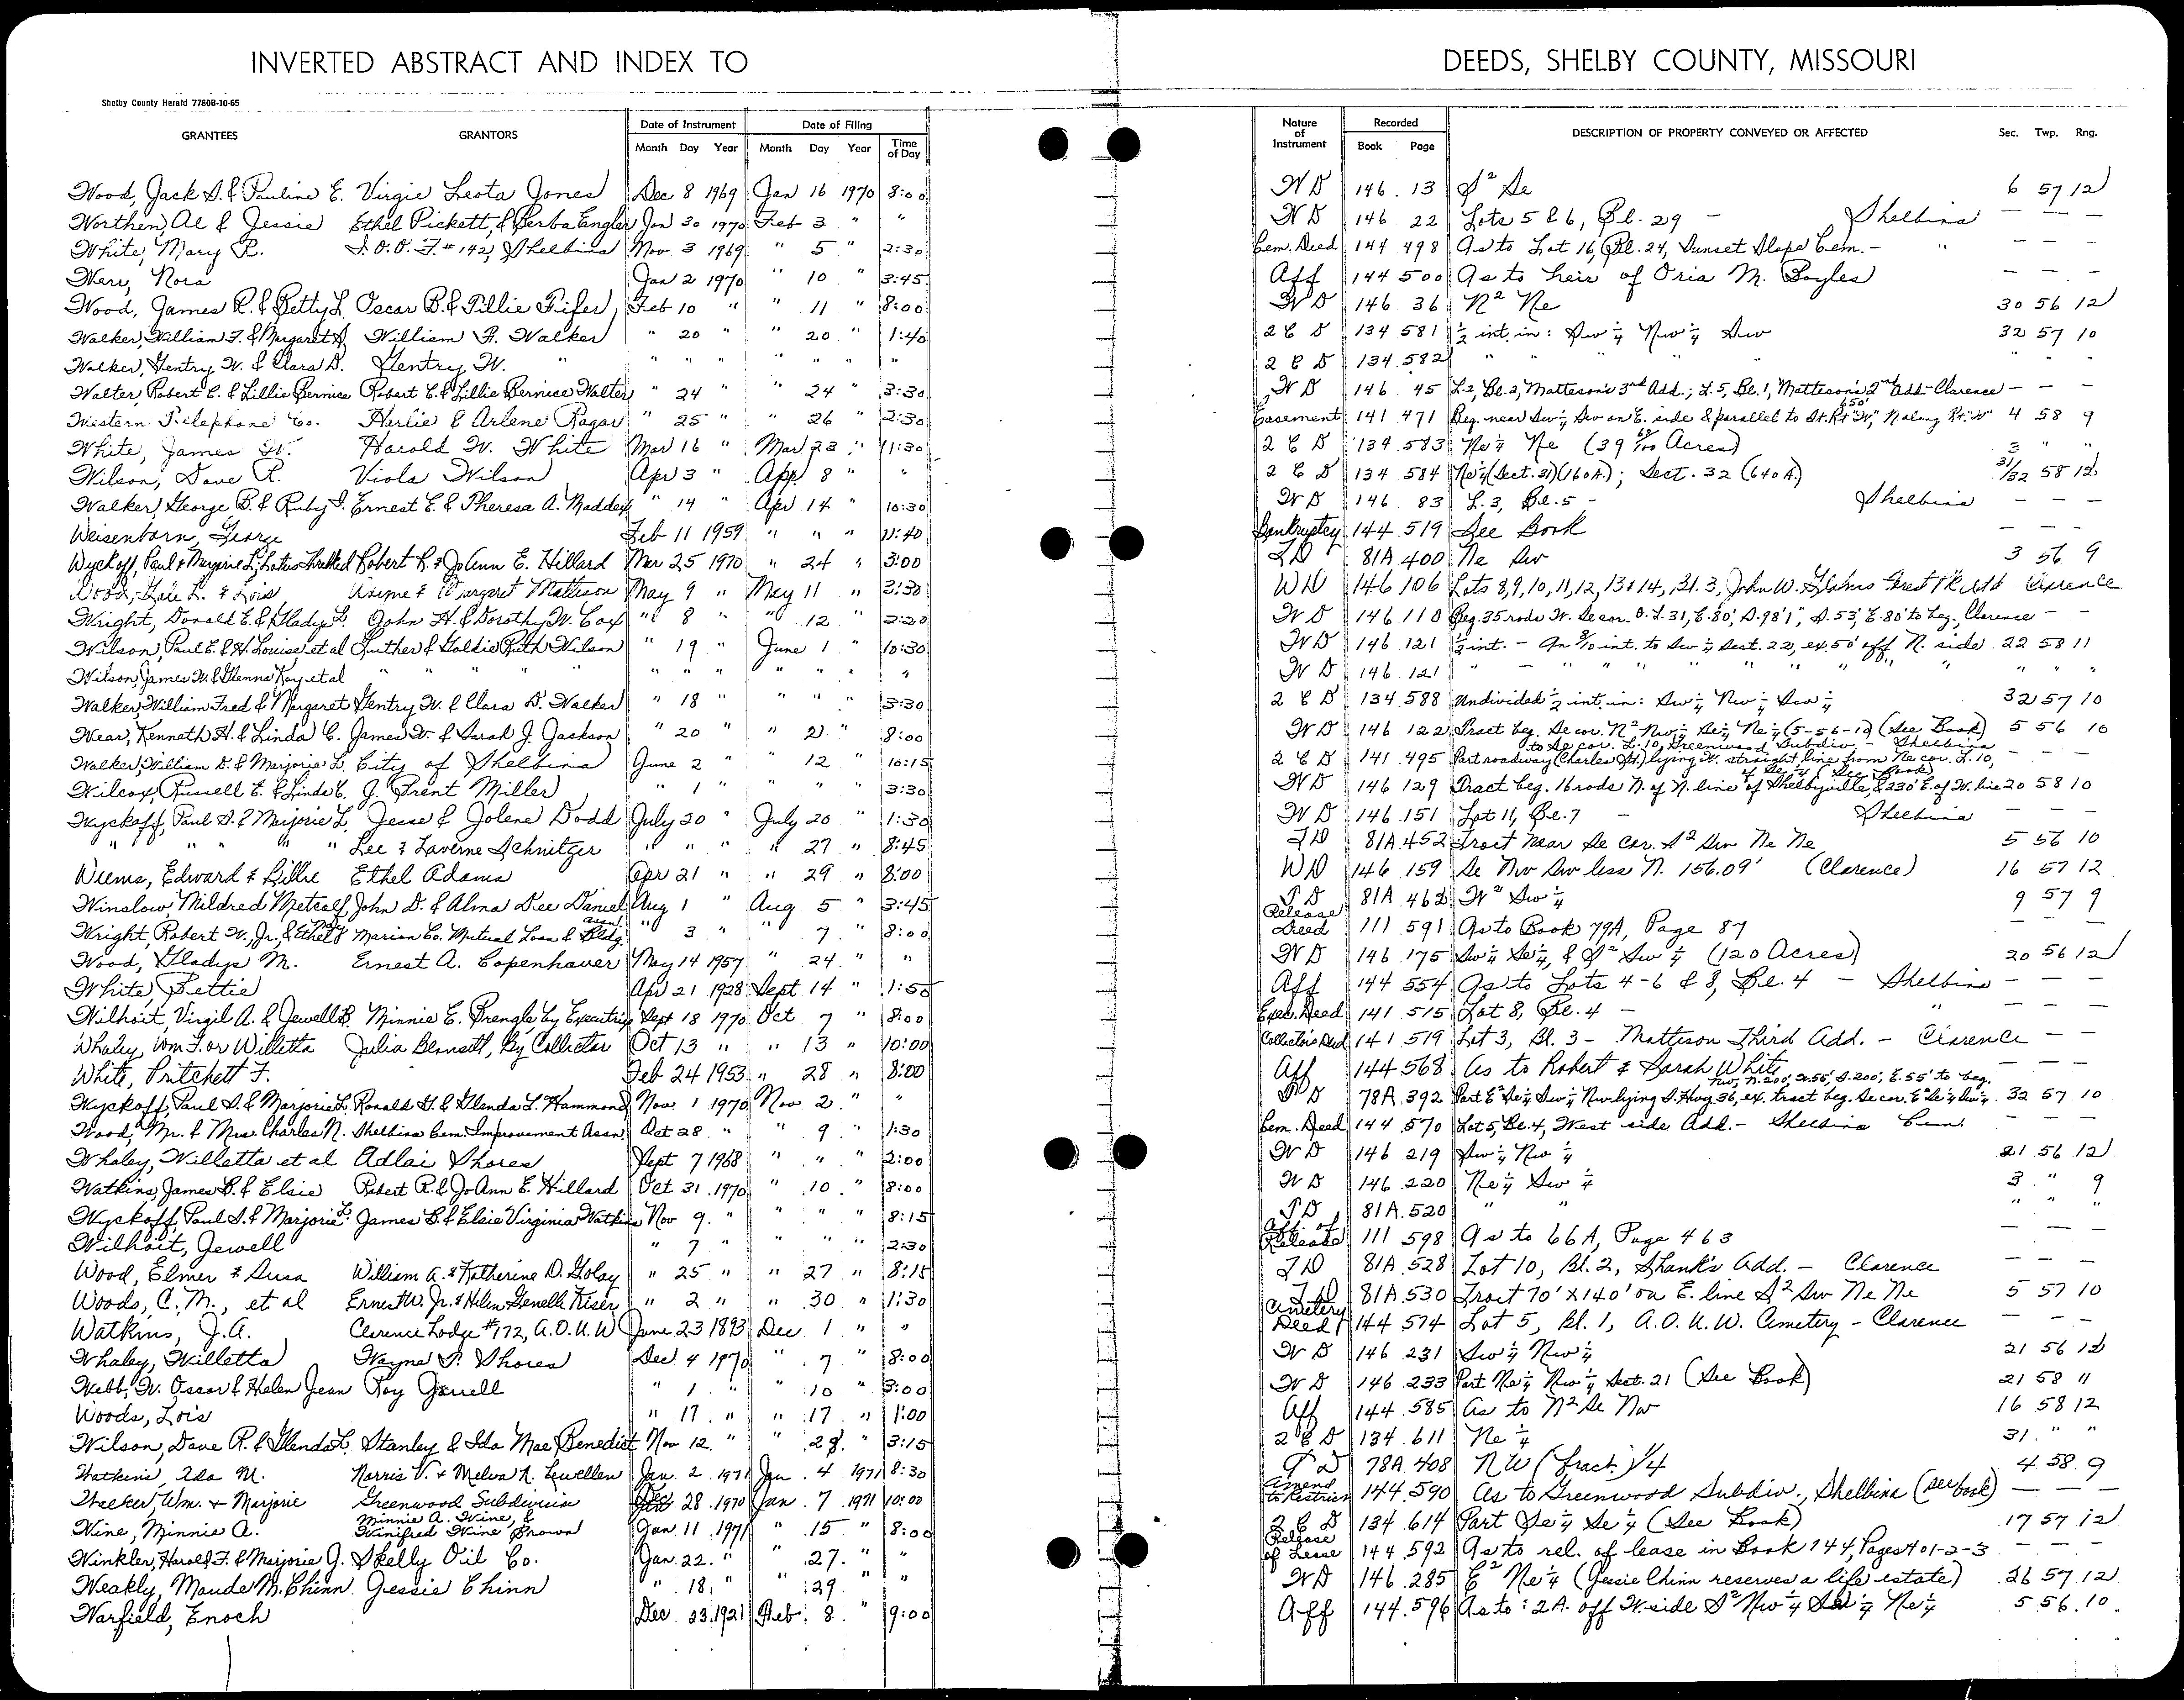 INVERTED ABSTRACT AND INDEX TO DEEDS, SHELBY COUNTY, MISSOURI
Shelby County Herald 7780B-10-65
GRANTEES GRANTORS Date of Instrument Month Day Year Date of Filing Month Day Year Time of Day Nature of Instrument Recorded Book Page DESCRIPTION OF PROPERTY CONVEYED OR AFFECTED Sec. Twp. Rng.
Wood, Jack S. & Pauline E. Virgie Leota Jones Dec 8 1969 Jan 16 1970 8:00 WD 146 13 S² Se 6 57 12
Worthen, Al & Jessie Ethel Pickett, & Berba Engler Jan 30 1970 Feb 3 " " WD 146 22 Lots 5 & 6, Bl. 29 - Shelbina — — —
White, Mary R. I.O.O.F. #142, Shelbina Nov 3 1969 " 5 " 2:30 Cem. Deed 144 498 As to Lot 16, Bl. 24, Sunset Slope Cem. - " — — —
Nora Jan 2 1970 " 10 " 3:45 Aff 144 500 As to heir of Oria M. Boyles — — —
Wood, James R. & Betty L. Oscar B. & Tillie Fifer Feb 10 " " 11 " 8:00 WD 146 36 N² Ne 30 56 12
Walker, William F. & Margaret A. William F. Walker " 20 " " 20 " 1:40 2 C D 134 581 ½ int. in: Sw ¼ Nw ¼ Sw 32 57 10
Walker, Gentry W. & Clara D. Gentry W. " " " " " " " " 2 C D 134 582 " " " " " " " "
Walter, Robert C. & Lillie Bernice Robert C. & Lillie Bernice Walter " 24 " 24 " 3:30 WD 146 45 L. 2, Bl. 2, Matteson's 3rd Add.; L. 5, Bl. 1, Matteson's 2nd Add - Clarence — — —
Western Telephone Co. Harlie & Arlene Ragar " 25 " " 26 " 2:30 Easement 141 471 Beg. near Sw ¼ Sw on E. side & parallel to St. Rt "W", N. along Rt. "W" 650' 4 58 9
White, James W. Harold W. White Mar 16 " Mar 23 " 11:30 2 C D 134 583 Ne ¼ Ne (39 Acres) 3 " "
Wilson, Dave R. Viola Wilson Apr 3 " Apr 8 " " 2 C D 134 584 Ne ¼ (Sect. 31) (160 A.); Sect. 32 (640 A.) 31/32 58 12
Walker, George B. & Ruby I. Ernest E. & Theresa A. Maddex " 14 " Apr 14 " 10:30 WD 146 83 L. 3, Bl. 5 - Shelbina — — —
Weisenborn, George Feb 11 1959 " " " 11:40 Bankruptcy 144 519 See Book — — —
Wyckoff, Paul & Marjorie L. Robert R. & JoAnn E. Hillard Mar 25 1970 " 24 " 3:00 TD 81A 400 Ne Sw 3 56 9
Wood, Gale L. & Lois Wayne & Margaret Mattison May 9 " May 11 " 3:30 WD 146 106 Lots 8, 9, 10, 11, 12, 13 & 14, Bl. 3, John W. Clarence
Wright, Donald E. & Gladys L. John H. & Dorothy W. Cox " 8 " " 12 " 2:20 WD 146 110 Beg. 35 rods W. Se cor. O. L. 31, E. 80', S. 98' 1", S. 53', E. 80' to beg., Clarence — —
Wilson, Paul E. & H. Louise et al Luther & Goldie Ruth Wilson " 19 " June 1 " 10:30 WD 146 121 ½ int. - An int. to Sw ¼ Sect. 22, ex. 50' off N. side 22 58 11
Wilson, James W. & Glenna Kay et al " " " " " " " " " " WD 146 121 " " " " " " " " "
Walker, William Fred & Margaret Gentry W. & Clara D. Walker " 18 " " " " 3:30 2 C D 134 588 Undivided ½ int. in: Sw ¼ Nw ¼ Sw ¼ 32 57 10
Wear, Kenneth H. & Linda C. James W. & Sarah J. Jackson " 20 " " 2 " 8:00 WD 146 122 Tract beg. Se cor. N² Nw ¼ Se ¼ Ne ¼ (5-56-10) (See Book) 5 56 10
Walker, William D. & Marjorie L. City of Shelbina June 2 " " 12 " 10:15 2 C D 141 495 Part roadway (Charles St.) lying W. straight line from Ne cor. L. 10, to Se cor. L. 10, Greenwood Subdiv. - Shelbina — — —
Wilcox, Russell E. & Linda C. J. Brent Miller " 1 " " " " 3:30 WD 146 129 Tract beg. 16 rods N. of N. line of Shelbyville, & 230' E. of W. line of Se ¼ (See Book) 20 58 10
Wyckoff, Paul S. & Marjorie L. Jesse & Jolene Dodd July 20 " July 20 " 1:30 WD 146 151 Lot 11, Bl. 7 - Shelbina — — —
" " " " Lee & Laverne Schnitzer " " " " 27 " 8:45 TD 81A 452 Tract near Se cor. S² Sw Ne Ne 5 56 10
Weems, Edward & Billie Ethel Adams Apr 21 " " 29 " 8:00 WD 146 159 Se Nw Sw less N. 156.09' (Clarence) 16 57 12
Winslow, Mildred Metcalf John D. & Alma Dee Daniel Aug 1 " Aug. 5 " 3:45 TD 81A 462 W² Sw ¼ 9 57 9
Wright, Robert W., Jr., & Ethel Marion Co. Mutual Loan & Bldg. Assn. " 3 " " 7 " 8:00 Release Deed 111 591 As to Book 79A, Page 87 — — —
Wood, Gladys M. Ernest A. Copenhaver May 14 1957 " 24 " " WD 146 175 Sw ¼ Se ¼, & S² Sw ¼ (120 Acres) 20 56 12
White, Bettie Apr 21 1928 Sept 14 " 1:50 Aff 144 554 As to Lots 4-6 & 8, Bl. 4 - Shelbina — — —
Wilhoit, Virgil A. & Jewell B. Minnie E. Prengle by Executrix Sept 18 1970 Oct 7 " 8:00 Exec. Deed 141 515 Lot 8, Bl. 4 - " — — —
Whaley, Wm F. or Willetta Julia Blansett, By Collector Oct 13 " " 13 " 10:00 Collector's Deed 141 519 Lot 3, Bl. 3 - Mattison Third Add. - Clarence — —
White, Pritchett F. Feb 24 1953 " 28 " 8:00 Aff 144 568 As to Robert & Sarah White — — —
Wyckoff, Paul S. & Marjorie L. Ronald G. & Glenda L. Hammond Nov. 1 1970 Nov. 2 " " TD 78A 392 Part E² Se ¼ Sw ¼ Nw lying S. Hwy. 36, ex. tract beg. Se cor. E² Se ¼ Sw ¼ Nw, N. 200', W. 55', S. 200', E. 55' to beg. 32 57 10
Wood, Mr. & Mrs. Charles N. Shelbina Cem. Improvement Assn. Oct 28 " " 9 " 1:30 Cem. Deed 144 570 Lot 5, Bl. 4, West side Add. - Shelbina Cem. — — —
Whaley, Willetta et al Adlai Shores Sept. 7 1968 " " " 2:00 WD 146 219 Sw ¼ Nw ¼ 21 56 12
Watkins, James B. & Elsie Robert R. & JoAnn E. Hillard Oct. 31 1970 " 10 " 8:00 WD 146 220 Ne ¼ Sw ¼ 3 " 9
Wyckoff, Paul S. & Marjorie L. James B. & Elsie Virginia Watkins Nov 9 " " " " 8:15 TD 81A 520 " " " " "
Wilhoit, Jewell " 7 " " " " 2:30 Aff. of Release 111 598 As to 66A, Page 463 — — —
Wood, Elmer & Susa William A. & Katherine D. Golay " 25 " " 27 " 8:15 TD 81A 528 Lot 10, Bl. 2, Shank's Add. - Clarence — — —
Woods, C. M., et al Ernest W. Jr. & Helen Genelle Kiser " 2 " " 30 " 1:30 TD 81A 530 Tract 70' X 140' on E. line S² Sw Ne Ne 5 57 10
Watkins, J. A. Clarence Lodge #172, A.O.U.W June 23 1893 Dec 1 " " Cemetery Deed 144 574 Lot 5, Bl. 1, A.O.U.W. Cemetery - Clarence — — —
Whaley, Willetta Wayne P. Shores Dec. 4 1970 " 7 " 8:00 WD 146 231 Sw ¼ Nw ¼ 21 56 12
Webb, W. Oscar & Helen Jean Roy Garrell " 1 " " 10 " 3:00 WD 146 233 Part Ne ¼ Nw ¼ Sect. 21 (See Book) 21 58 11
Woods, Lois " 17 " " 17 " 1:00 Aff 144 585 As to N² Se Nw 16 58 12
Wilson, Dave R. & Glenda L. Stanley & Ida Mae Benedict Nov. 12 " " 28 " 3:15 2 C D 134 611 Ne ¼ 31 " "
Watkins, Ada M. Norris V. & Melva N. Lewellen Jan. 2 1971 Jan. 4 1971 8:30 TD 78A 408 NW (fract.) 1/4 4 58 9
Walker, Wm. & Marjorie Greenwood Subdivision Dec. 28 1970 Jan. 7 1971 10:00 Amend to Restrict 144 590 As to Greenwood Subdiv., Shelbina (see book) — — —
Wine, Minnie A. Minnie A. Wine, & Winifred Wine Brown Jan. 11 1971 " 15 " 8:00 2 C D 134 614 Part Se ¼ Se ¼ (See Book) 17 57 12
Winkler, Harold F. & Marjorie J. Skelly Oil Co. Jan. 22 " " 27 " " Release of Lease 144 592 As to rel. of lease in Book 144, Pages 401-2-3 — — —
Weakly, Maude M. Chinn Jessie Chinn " 18 " " 29 " " WD 146 285 E² Ne ¼ (Jessie Chinn reserves a life estate) 26 57 12
Warfield, Enoch Dec. 23 1921 Feb. 8 " 9:00 Aff 144 596 As to: 2 A. off W. side S² Nw ¼ Se ¼ Ne ¼ 5 56 10